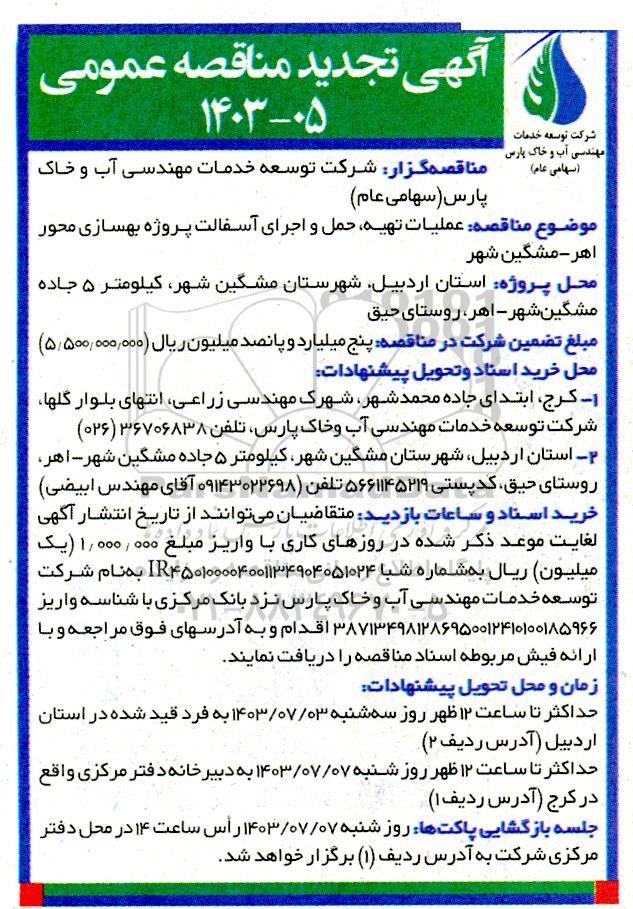 آگهی تجدید مناقصه عمومی
۱۴۰۳-۰۵
شرکت توسعه خدمات
مهندسی آب و خاک پارس
(سهامی عام)
مناقصه‌گزار: شرکت توسعه خدمات مهندسی آب و خاک
پارس(سهامی عام)
موضوع مناقصه: عملیات تهیه، حمل و اجرای آسفالت پروژه بهسازی محور
اهر-مشگین شهر
محل پروژه: استان اردبیل، شهرستان مشگین شهر، کیلومتر ۵ جاده
مشگین‌شهر-اهر، روستای حیق
مبلغ تضمین شرکت در مناقصه: پنج میلیارد و پانصد میلیون ریال (۵٫۵۰۰٫۰۰۰٫۰۰۰)
محل خرید اسناد و تحویل پیشنهادات:
۱- کرج، ابتدای جاده محمدشهر، شهرک مهندسی زراعی، انتهای بلوار گلها،
شرکت توسعه خدمات مهندسی آب وخاک پارس، تلفن ۳۶۷۰۶۸۳۸ (۰۲۶)
۲- استان اردبیل، شهرستان مشگین شهر، کیلومتر ۵ جاده مشگین شهر-اهر،
روستای حیق، کدپستی ۵۶۶۱۱۴۵۲۱۹ تلفن (۰۹۱۴۳۰۲۲۶۹۸ آقای مهندس ابیضی)
خرید اسناد و ساعات بازدید: متقاضیان می‌توانند از تاریخ انتشار آگهی
لغایت موعد ذکر شده در روزهای کاری با واریز مبلغ ۱٫۰۰۰٫۰۰۰ (یک
میلیون) ریال به‌شماره شبا IR۴۵۰۱۰۰۰۰۴۰۰۱۱۳۴۹۰۴۰۵۱۰۲۴ به‌نام شرکت
توسعه خدمات مهندسی آب و خاک پارس نزد بانک مرکزی با شناسه واریز
۳۸۷۱۳۴۹۸۱۲۸۶۹۵۰۰۱۲۴۱۰۱۰۰۱۸۵۹۶۶ اقدام و به آدرسهای فوق مراجعه و با
ارائه فیش مربوطه اسناد مناقصه را دریافت نمایند.
زمان و محل تحویل پیشنهادات:
حداکثر تا ساعت ۱۲ ظهر روز سه‌شنبه ۱۴۰۳/۰۷/۰۳ به فرد قید شده در استان
اردبیل (آدرس ردیف ۲)
حداکثر تا ساعت ۱۲ ظهر روز شنبه ۱۴۰۳/۰۷/۰۷ به دبیرخانه دفتر مرکزی واقع
در کرج (آدرس ردیف ۱)
جلسه بازگشایی پاکت‌ها: روز شنبه ۱۴۰۳/۰۷/۰۷ رأس ساعت ۱۴ در محل دفتر
مرکزی شرکت به آدرس ردیف (۱) برگزار خواهد شد.